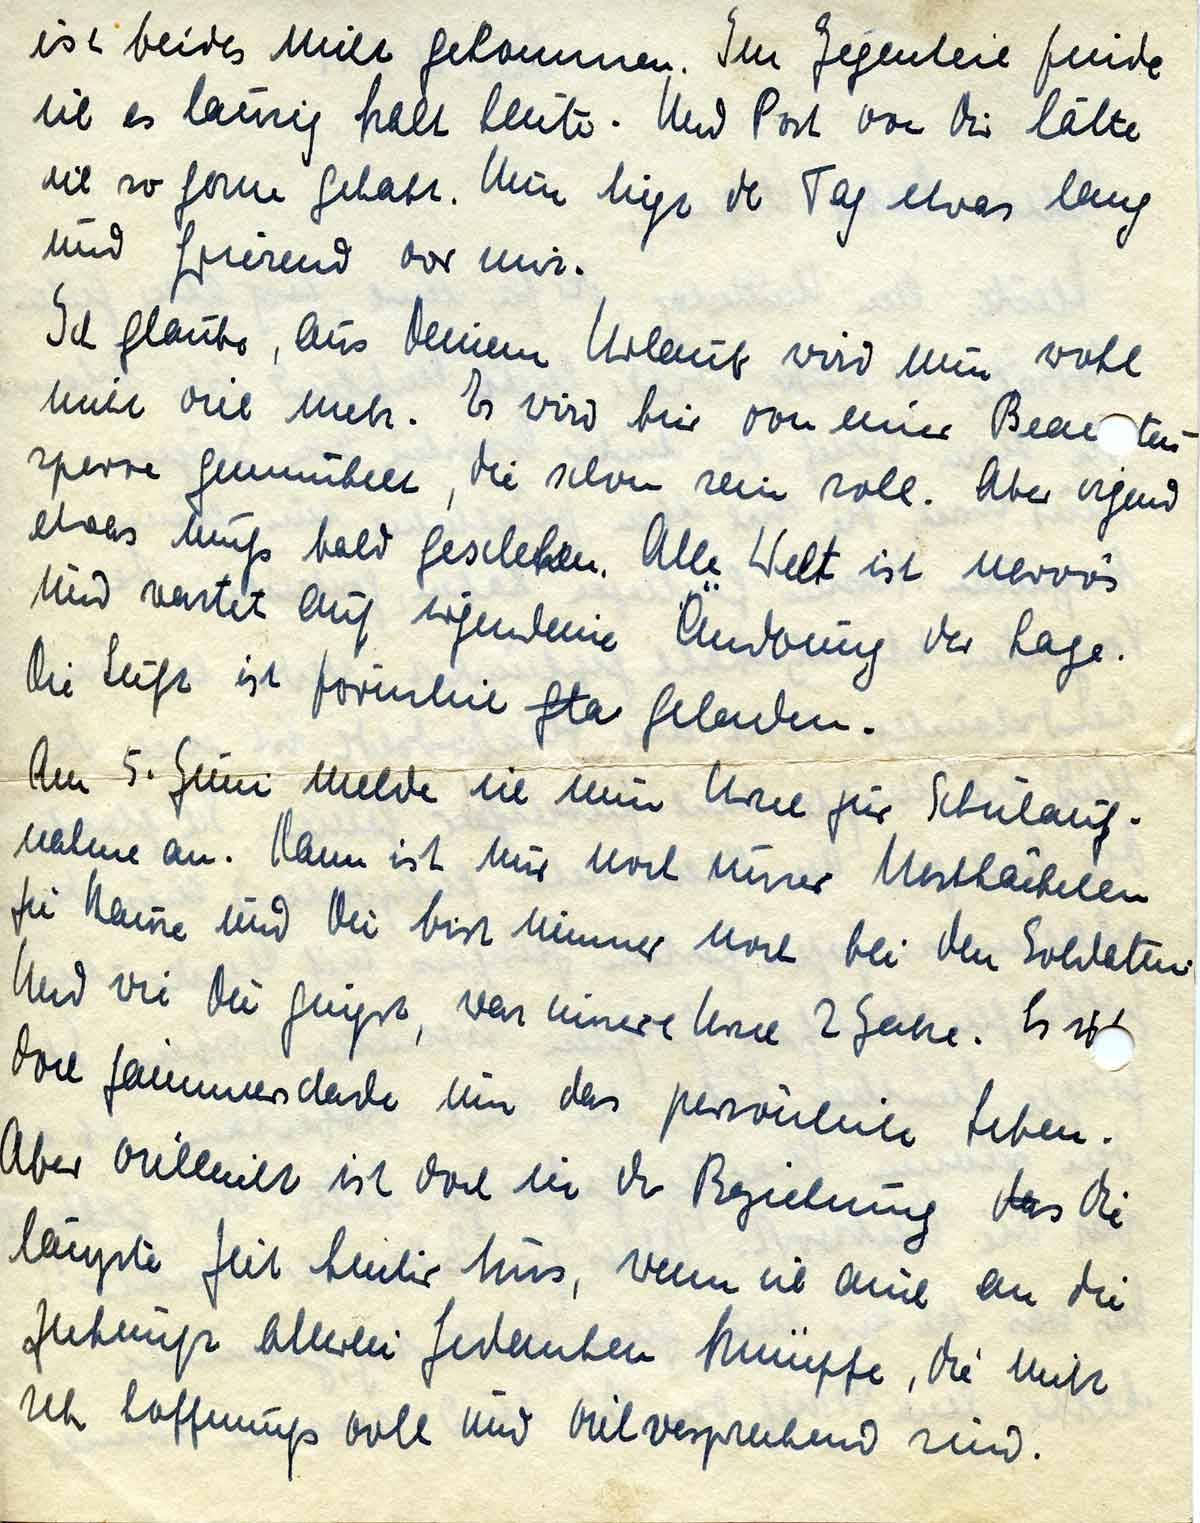 ist beides nicht gekommen. Im Gegenteil finde
ich es lausig kalt heute. Und Post von Dir hätte
ich so gerne gehabt. Nun liegt der Tag etwas lang
und frierend vor mir.
Ich glaube, aus Deinem Urlaub wird nun wohl
nicht viel mehr. Es wird hier von einer Beamten
sperre gemunkelt, die schon sein soll. Aber irgend
etwas muß bald geschehen. Alle Welt ist nervös
und wartet auf irgendeine Änderung der Lage.
Die Luft ist förmlich gela geladen.
Am 5. Juni melde ich nun Ursel für Schulauf-
nahme an. Dann ist nur noch unser Nesthäkchen
zu Hause und Du bist immer noch bei den Soldaten.
Und wie Du gingst, war unsere Ursel 2 Jahre. Es ist
doch jammerschade um das persönliche Leben.
Aber vielleicht ist doch in der Beziehung das die
längste Zeit hinter uns, wenn ich auch an die
Zukunft allerlei Gedanken knüpfe, die nicht
sehr hoffnungsvoll und vielversprechend sind.